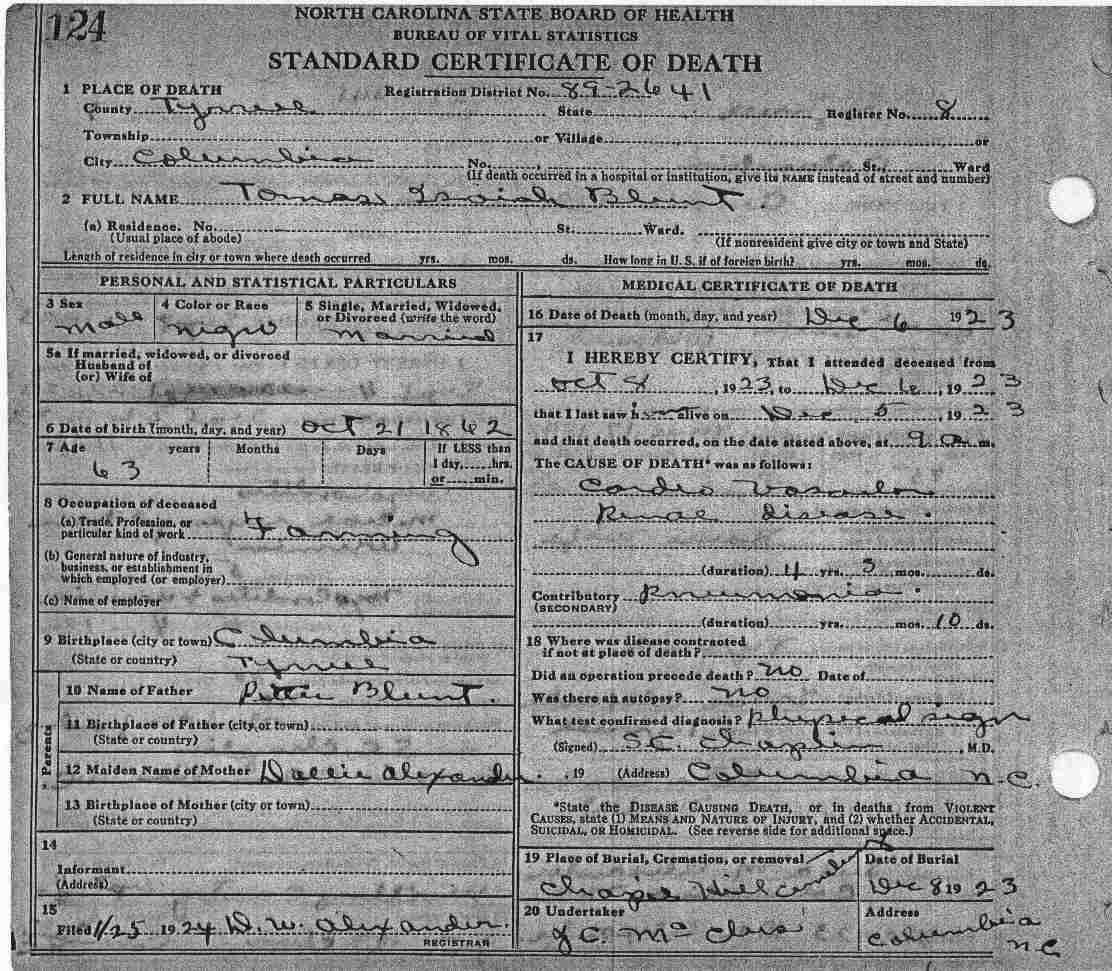 124
NORTH CAROLINA STATE BOARD OF HEALTH
BUREAU OF VITAL STATISTICS
STANDARD CERTIFICATE OF DEATH
1 PLACE OF DEATH Registration District No. 89-2641
County Tyrrell State Register No. 8
Township or Village or
City Columbia No. , St., Ward
(If death occurred in a hospital or institution, give its NAME instead of street and number)
2 FULL NAME Tomas Isaiah Blunt
(a) Residence. No. St. Ward.
(Usual place of abode) (If nonresident give city or town and State)
Length of residence in city or town where death occurred yrs. mos. ds. How long in U. S. if of foreign birth? yrs. mos. ds.
PERSONAL AND STATISTICAL PARTICULARS
3 Sex 4 Color or Race 5 Single, Married, Widowed, or Divorced (write the word)
Male Nigro Married
5a If married, widowed, or divorced
Husband of
(or) Wife of
6 Date of birth (month, day, and year) Oct 21 1862
7 Age years Months Days If LESS than
1 day, hrs.
63 or min.
8 Occupation of deceased
(a) Trade, Profession, or
particular kind of work Farming
(b) General nature of industry,
business, or establishment in
which employed (or employer)
(c) Name of employer
9 Birthplace (city or town) Columbia
(State or country) Tyrrell
Parents
10 Name of Father Blunt.
11 Birthplace of Father (city or town)
(State or country)
12 Maiden Name of Mother Dollie Alexander
13 Birthplace of Mother (city or town)
(State or country)
14
Informant
(Address)
15
Filed 1/25 1924 D. W. Alexander.
REGISTRAR
MEDICAL CERTIFICATE OF DEATH
16 Date of Death (month, day, and year) Dec 6 1923
17
I HEREBY CERTIFY, That I attended deceased from
Oct 8, 1923, to Dec 6, 1923
that I last saw him alive on Dec 5, 1923
and that death occurred, on the date stated above, at 9 a m.
The CAUSE OF DEATH* was as follows:
Cardio Vascular
Renal Disease.
(duration) 4 yrs. 3 mos. ds.
Contributory Pneumonia.
(SECONDARY)
(duration) yrs. mos. 10 ds.
18 Where was disease contracted
if not at place of death?
Did an operation precede death? no Date of
Was there an autopsy? no
What test confirmed diagnosis? Physical sign
(Signed) S.C. Chaplin, M.D.
, 19 (Address) Columbia N.C.
*State the DISEASE CAUSING DEATH, or in deaths from VIOLENT
CAUSES, state (1) MEANS AND NATURE OF INJURY, and (2) whether ACCIDENTAL,
SUICIDAL, OR HOMICIDAL. (See reverse side for additional space.)
19 Place of Burial, Cremation, or removal Date of Burial
Chapel Hill Cemetery Dec 8 1923
20 Undertaker Address
J C. Mc Columbia
N.C